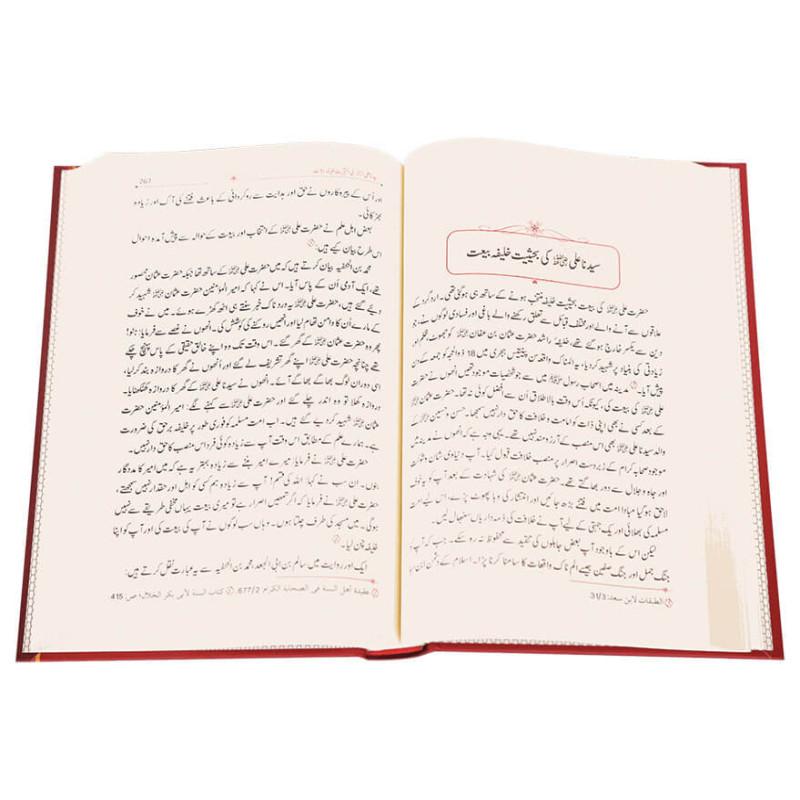 سیدنا علی رضی اللہ عنہ کی بحیثیت خلیفہ بیعت
حضرت علی رضی اللہ عنہ کی بیعت بحیثیت خلیفہ منتخب ہونے کے ساتھ ہی ہو گئی تھی۔ ارد گرد کے
علاقوں سے آنے والے اور مختلف قبائل سے تعلق رکھنے والے باغی اور فسادی لوگوں نے، جو
دین سے یکسر خارج ہو گئے تھے، خلیفۂ راشد حضرت عثمان بن عفان رضی اللہ عنہ کو جھوٹ، ظلم اور
زیادتی کی بنیاد پر شہید کر دیا، یہ المناک واقعہ سن پینتیس ہجری میں 18 ذوالحجہ کو جمعہ کے دن
پیش آیا۔ مدینہ میں اصحاب رسول میں سے جو شخصیات موجود تھیں انھوں نے حضرت
علی رضی اللہ عنہ کی بیعت کی، کیونکہ اُس وقت بالاطلاق اُن سے افضل کوئی نہ تھا۔ حضرت عثمان رضی اللہ عنہ
کے بعد کسی نے بھی اپنی ذات کو امامت و خلافت کا حق دار نہیں سمجھا۔ حسن و حسین کے
والد سیدنا علی رضی اللہ عنہ بھی اس منصب کے آرزومند نہیں تھے۔ یہی وجہ ہے کہ انھوں نے مدینہ میں
موجود صحابہ کرام کے زبردست اصرار پر منصب خلافت قبول کیا۔ آپ دنیاوی شان و شوکت
اور جاہ و جلال سے دور بھاگتے تھے۔ حضرت عثمان رضی اللہ عنہ کی شہادت کے بعد آپ کو یہ خوف
لاحق ہو گیا مبادا امت میں فتنے بڑھ جائیں اور انتشار کی وبا پھوٹ پڑے، اس لیے امت
مسلمہ کی بھلائی اور یک جہتی کے لیے آپ نے خلافت کی ذمہ داریاں سنبھال لیں۔
لیکن اس کے باوجود آپ بعض جاہلوں کی تنقید سے محفوظ نہ رہ سکے۔ جب کہ آپ کو
جنگ جمل اور جنگ صفین جیسے الم ناک واقعات کا سامنا کرنا پڑا۔ اسلام کے دشمن ابن
① الطبقات لابن سعد: 31/3.
267
اور اُس کے پیروکاروں نے حق اور ہدایت سے روگردانی کے باعث فتنے کی آگ اور زیادہ
بھڑکائی۔
بعض اہل علم نے حضرت علی رضی اللہ عنہ کے انتخاب اور بیعت کے حوالہ سے پیش آمدہ احوال
اس طرح بیان کیے ہیں:
محمد بن الحنفیہ بیان کرتے ہیں کہ میں حضرت علی رضی اللہ عنہ کے ساتھ تھا جبکہ حضرت عثمان محصور
تھے، ایک آدمی اُن کے پاس آیا۔ اس نے کہا کہ امیر المؤمنین حضرت عثمان رضی اللہ عنہ شہید کر
دیے گئے ہیں، حضرت علی رضی اللہ عنہ یہ دردناک خبر سنتے ہی اٹھ کھڑے ہوئے۔ میں نے خوف
کے مارے اُن کا دامن تھام لیا اور انھیں روکنے کی کوشش کی۔ انھوں نے غصے سے فرمایا: ہٹو!
پھر وہ حضرت عثمان رضی اللہ عنہ کے گھر گئے۔ اس وقت تک وہ اپنے خالق حقیقی کے پاس پہنچ چکے
تھے چنانچہ حضرت علی رضی اللہ عنہ اپنے گھر تشریف لے گئے اور انھوں نے گھر کا دروازہ بند کر لیا،
اسی دوران لوگ بھاگے بھاگے آئے۔ انھوں نے سیدنا علی رضی اللہ عنہ کے گھر کا دروازہ کھٹکھٹایا۔
دروازہ کھلا تو وہ اندر چلے گئے اور حضرت علی رضی اللہ عنہ سے کہنے لگے: امیر المؤمنین حضرت
عثمان رضی اللہ عنہ شہید کر دیے گئے ہیں۔ اب امت مسلمہ کو فوری طور پر خلیفہ برحق کی ضرورت
ہے۔ ہمارے علم کے مطابق اس وقت آپ سے زیادہ کوئی فرد اس منصب کا حق دار نہیں۔
حضرت علی رضی اللہ عنہ نے فرمایا: میرے امیر بننے سے زیادہ بہتر یہ ہے کہ میں امیر کا مددگار
بنوں۔ ان سب نے کہا: اللہ کی قسم! آپ سے زیادہ ہم کسی کو اہل اور حقدار نہیں سمجھتے،
حضرت علی رضی اللہ عنہ نے فرمایا کہ اگر تمھیں اصرار ہے تو میری بیعت یہاں مخفی طریقے سے نہیں
ہو گی۔ میں مسجد کی طرف چلتا ہوں۔ وہاں سب لوگوں نے آپ کی بیعت کی اور آپ کو اپنا
خلیفہ چن لیا۔
ایک اور روایت میں سالم بن ابی الجعد، محمد بن الحنفیہ سے یہ عبارت نقل کرتے ہیں:
① عقيدة أهل السنة في الصحابة الكرام: 677/2. ② كتاب السنة لأبي بكر الخلال، ص: 415.